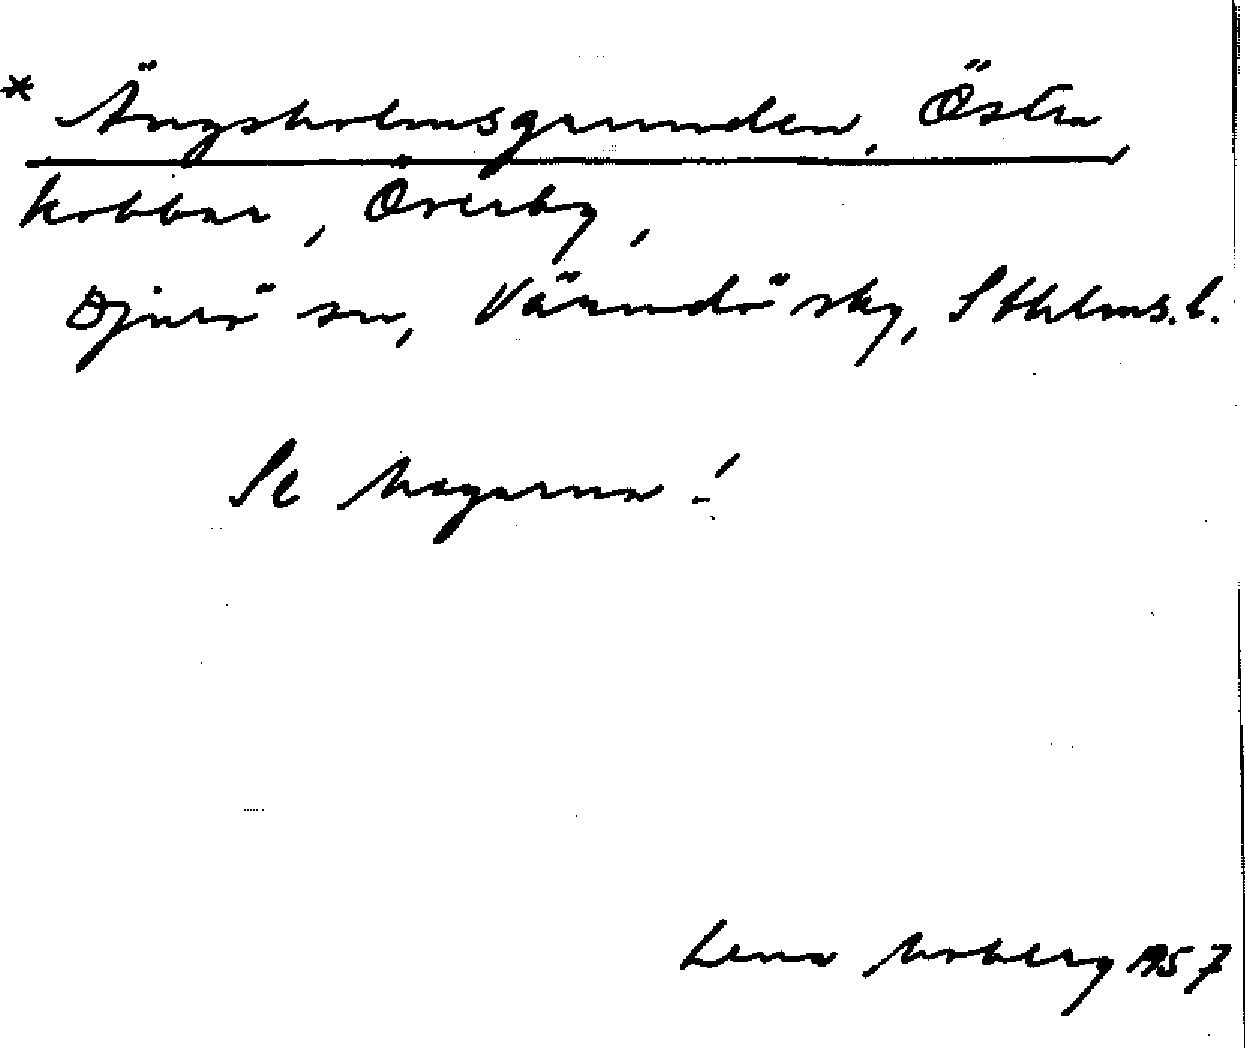 * Ängsholmsgrunden, Östra,
kobbar, Överby,
Djurö sn, Värmdö sky, Sthlms.l.
Se Hagarna!
Lena Moberg 1957